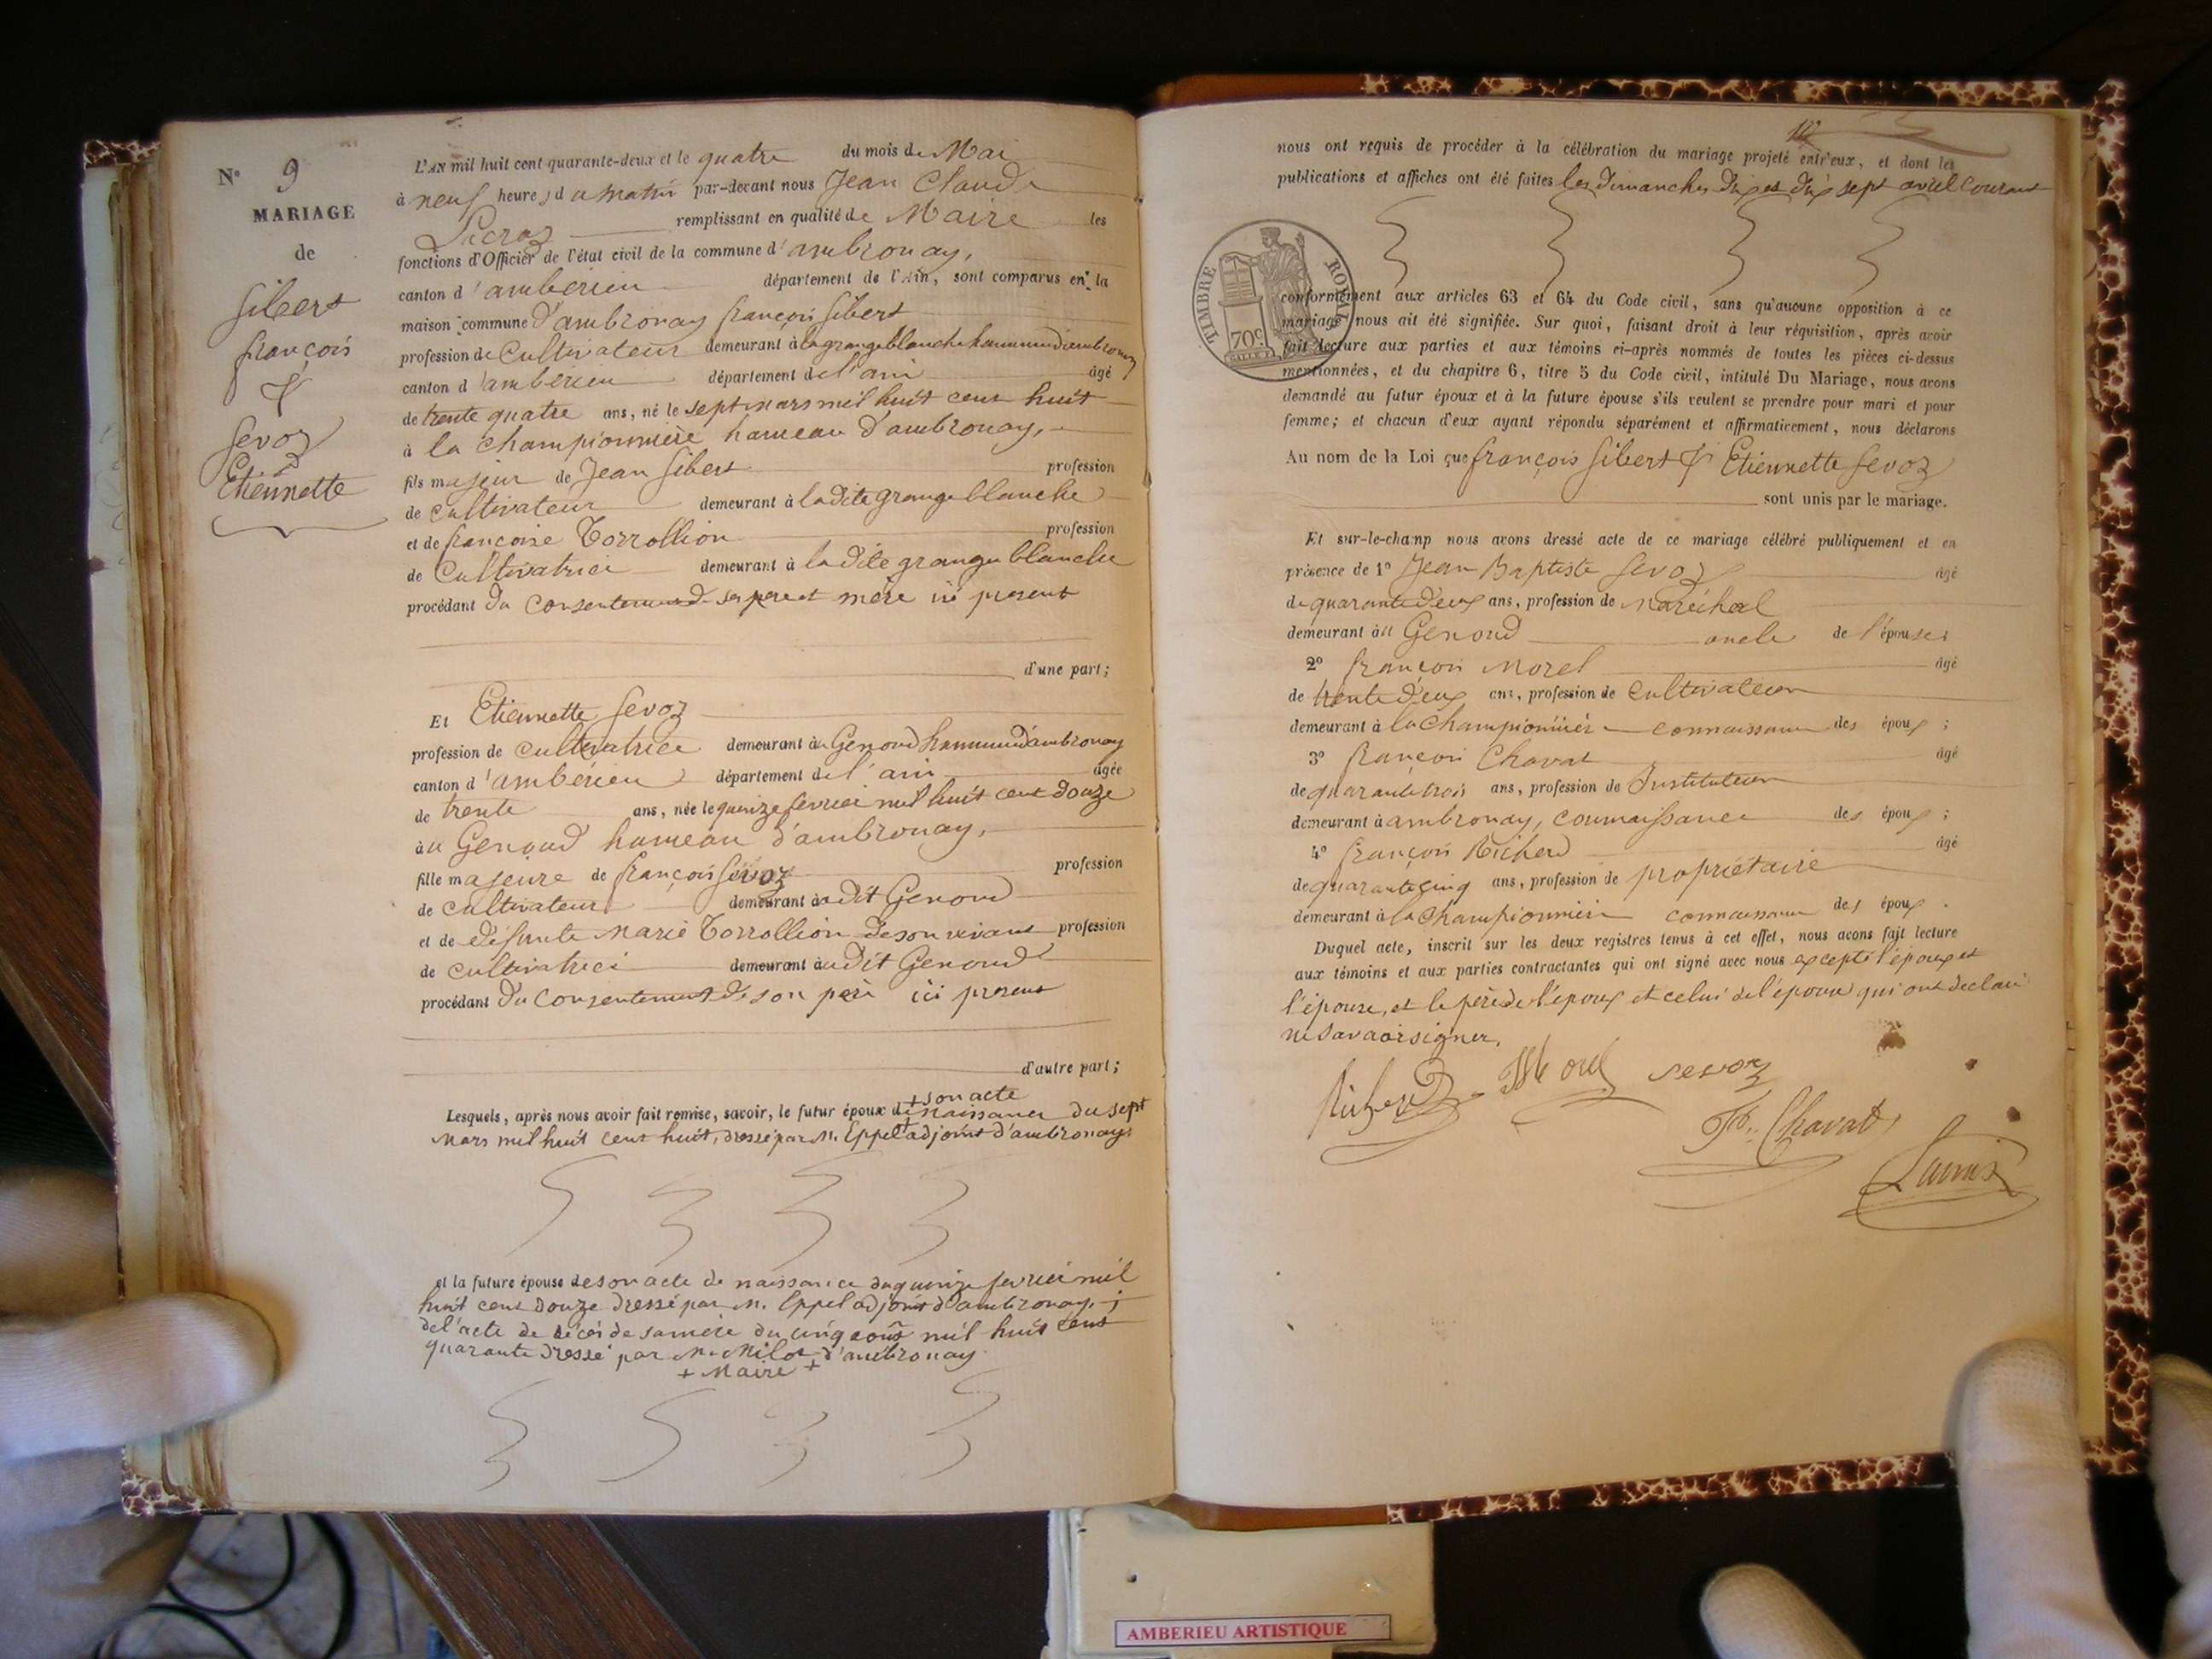 N° 9
MARIAGE
de
Sibert
françois
&
Sevoz
Etiennette
L'AN mil huit cent quarante-deux et le quatre du mois de Mai
à neuf heures du matin par-devant nous Jean Claude
remplissant en qualité de Maire les
fonctions d'Officier de l'état civil de la commune d'ambronay,
canton d'ambérieu département de l'Ain, sont comparus en la
maison commune d'ambronay françois Sibert
profession de Cultivateur demeurant à la grange blanche hammeau d'ambronay
canton d'ambérieu département de l'ain âgé
de trente quatre ans, né le sept mars mil huit cent huit
à la Championnière hameau d'ambronay,
fils majeur de Jean Sibert profession
de cultivateur demeurant à la dite grange blanche
et de françoise Torrollion profession
de Cultivatrice demeurant à la dite grange blanche
procédant du consentement de ses pere et mère ici present
d'une part;
Et Etiennette Sevoz
profession de cultivatrice demeurant au Genoud hammeau d'ambronay
canton d'ambérieu département de l'ain agée
de trente ans, née le quinze fevrier mil huit cent douze
au Genoud hameau d'ambronay,
fille majeure de françois Sevoz profession
de cultivateur demeurant au dit Genoud
et de défunte Marie Torrollion de son vivant profession
de cultivatrice demeurant au dit Genoud
procédant du consentement de son père ici present
d'autre part;
+ son acte
Lesquels, après nous avoir fait remise, savoir, le futur époux de + naissance du sept
Mars mil huit cent huit, dressé par M. Eppel adjoint d'ambronay.
et la future épouse de son acte de naissance du quinze fevrier mil
huit cent douze dressé par M. Eppel adjoint d'ambronay, ;
de l'acte de décès de sa mère du cinq août mil huit cent
quarante dressé par M. Milot d'ambronay
+ Maire +
nous ont requis de procéder à la célébration du mariage projeté entr'eux, et dont les
publications et affiches ont été faites les dimanches dix et dix sept avril courant
TIMBRE ROYAL
70c.
conformément aux articles 63 et 64 du Code civil, sans qu'aucune opposition à ce
mariage nous ait été signifiée. Sur quoi, faisant droit à leur réquisition, après avoir
fait lecture aux parties et aux témoins ci-après nommés de toutes les pièces ci-dessus
mentionnées, et du chapitre 6, titre 5 du Code civil, intitulé Du Mariage, nous avons
demandé au futur époux et à la future épouse s'ils veulent se prendre pour mari et pour
femme; et chacun d'eux ayant répondu séparément et affirmativement, nous déclarons
Au nom de la Loi que françois Sibert & Etiennette Sevoz
sont unis par le mariage.
Et sur-le-champ nous avons dressé acte de ce mariage célébré publiquement et en
présence de 1° Jean Baptiste Sevoz âgé
de quarante deux ans, profession de Maréchal
demeurant au Genoud oncle de l'épouse;
2° françois Morel âgé
de trente deux ans, profession de Cultivateur
demeurant à la Championnière connaissance des époux ;
3° françois Chavat âgé
de quarante trois ans, profession de Instituteur
demeurant à ambronay, connaissance des époux ;
4° françois Richerd âgé
de quarante cinq ans, profession de propriétaire
demeurant à la Championnière connaissance des époux .
Duquel acte, inscrit sur les deux registres tenus à cet effet, nous avons fait lecture
aux témoins et aux parties contractantes qui ont signé avec nous excepté l'époux et
l'épouse, et le père de l'époux et celui de l'épouse qui ont declaré
ne savoir signer.
Richerd Morel sevoz
Fs. Chavat
AMBERIEU ARTISTIQUE